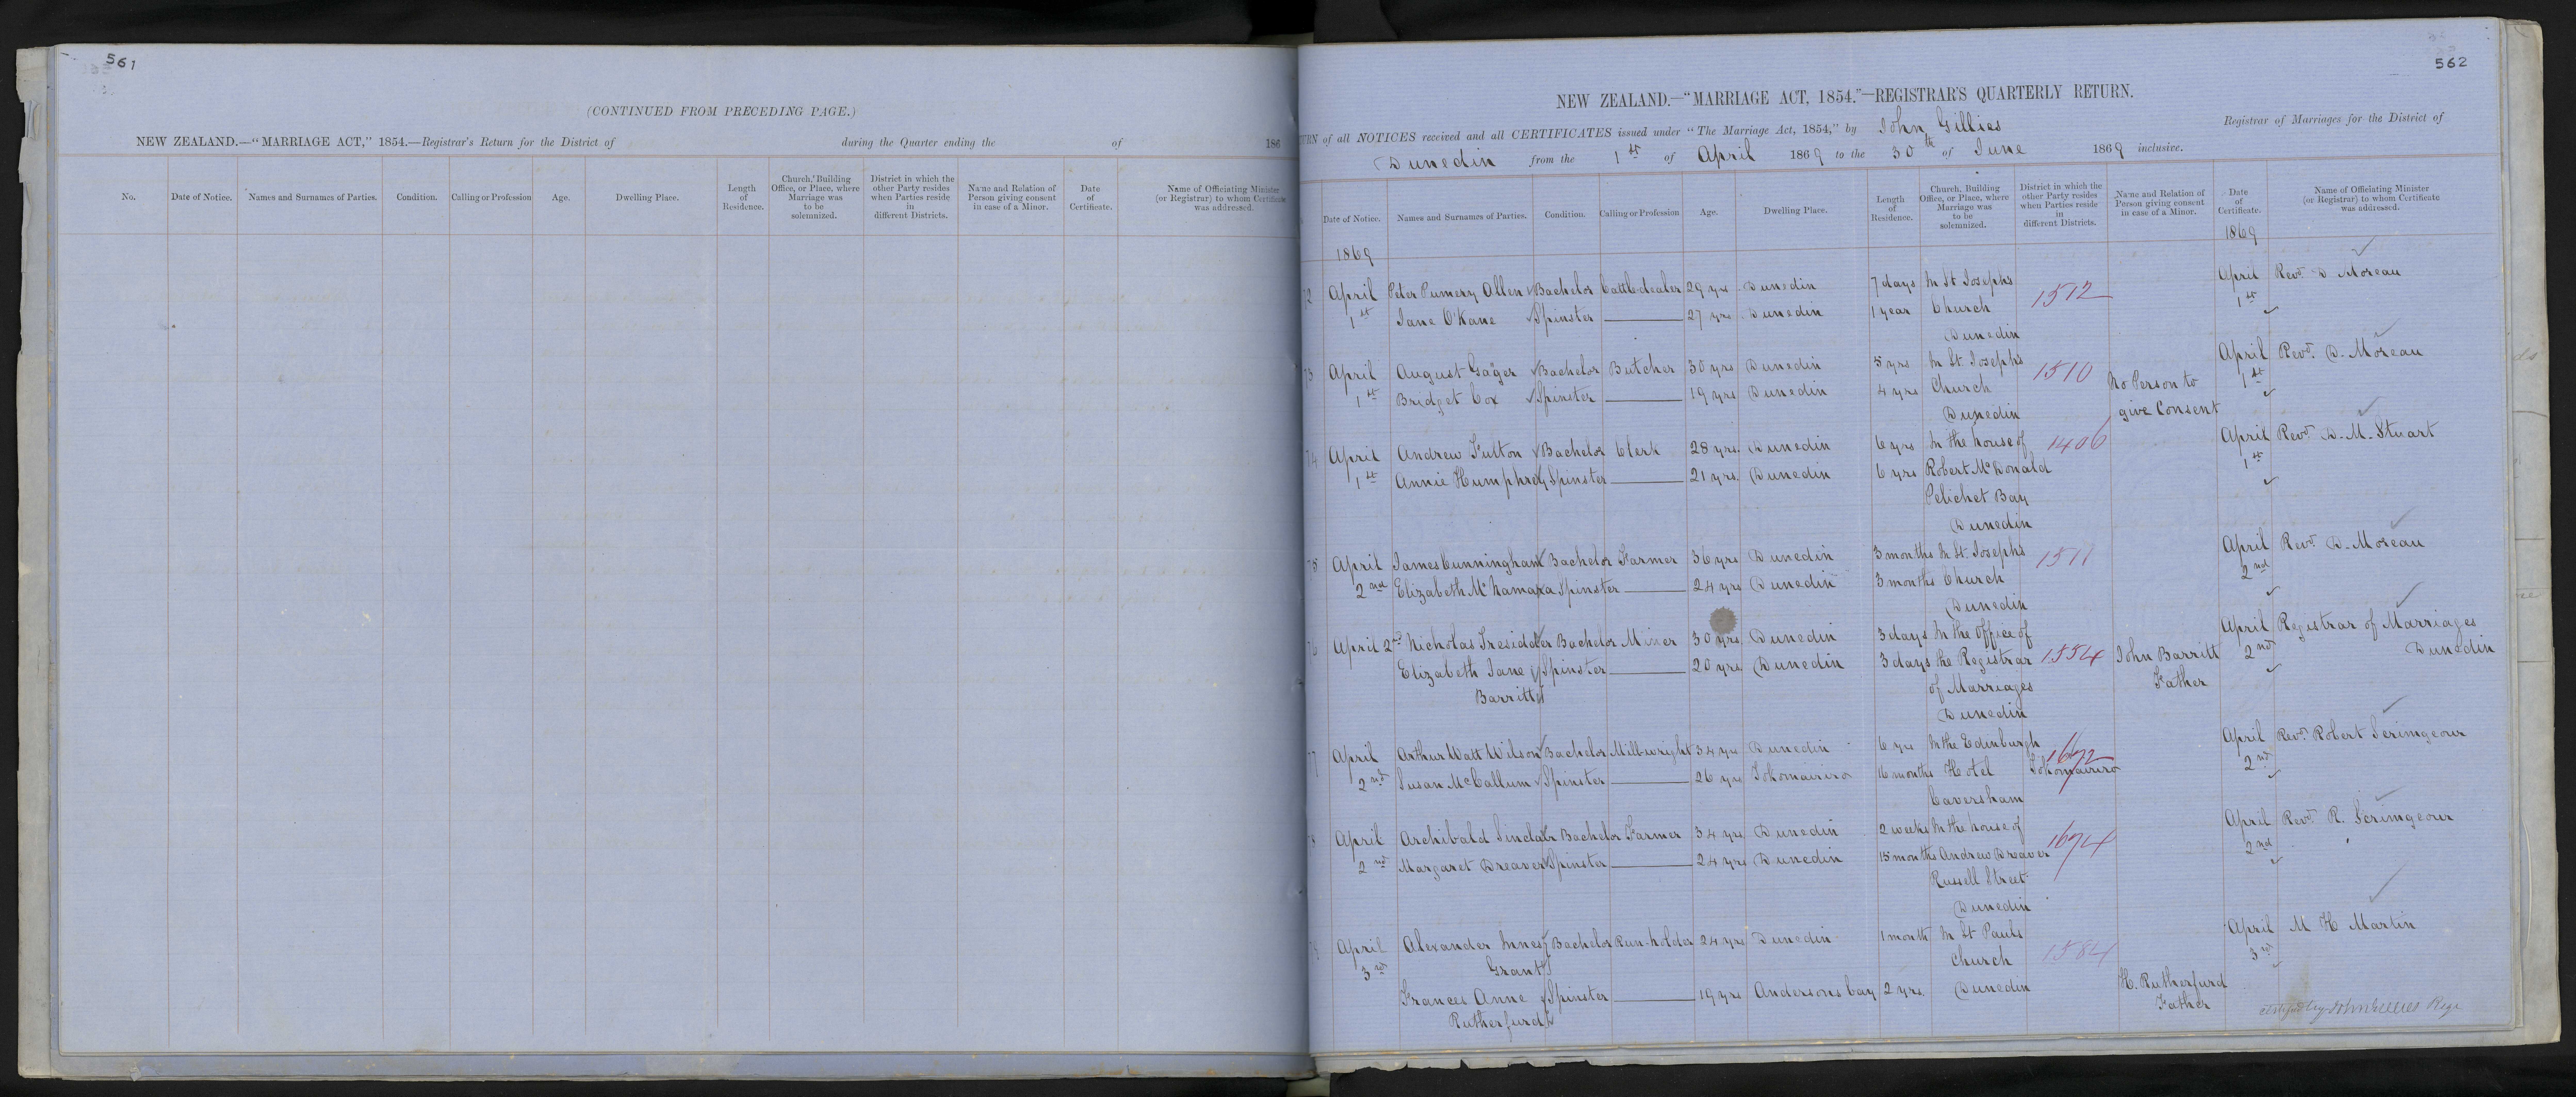 561
(CONTINUED FROM PRECEDING PAGE.)
NEW ZEALAND.—"MARRIAGE ACT," 1854.—Registrar's Return for the District of during the Quarter ending the of 186
No. Date of Notice. Names and Surnames of Parties. Condition. Calling or Profession Age. Dwelling Place. Length of Residence. Church, Building Office, or Place, where Marriage was to be solemnized. District in which the other Party resides when Parties reside in different Districts. Name and Relation of Person giving consent in case of a Minor. Date of Certificate. Name of Officiating Minister (or Registrar) to whom Certificate was addressed.
562
NEW ZEALAND.—"MARRIAGE ACT, 1854."—REGISTRAR'S QUARTERLY RETURN.
URN of all NOTICES received and all CERTIFICATES issued under "The Marriage Act, 1854," by John Gillies Registrar of Marriages for the District of
Dunedin from the 1st of April 1869 to the 30th of June 1869 inclusive.
Date of Notice. Names and Surnames of Parties. Condition. Calling or Profession Age. Dwelling Place. Length of Residence. Church, Building Office, or Place, where Marriage was to be solemnized. District in which the other Party resides when Parties reside in different Districts. Name and Relation of Person giving consent in case of a Minor. Date of Certificate. Name of Officiating Minister (or Registrar) to whom Certificate was addressed.
1869 1869
72 April Peter Pumery Allen Bachelor Cattle-dealer 29 yrs Dunedin 7 days In St Josephs 1512 April Revd. D Moreau
1st Jane O'Kane Spinster 27 yrs Dunedin 1 year Church 1st
Dunedin
73 April August Gager Bachelor Butcher 30 yrs Dunedin 5 yrs In St. Josephs 1510 April Revd. D. Moreau
1st Bridget Cox Spinster 19 yrs Dunedin 4 yrs Church No Person to 1st
Dunedin give Consent
74 April Andrew Fulton Bachelor Clerk 28 yrs. Dunedin 6 yrs In the house of 1406 April Revd. D. M. Stuart
1st Annie Humphrey Spinster 21 yrs. Dunedin 6 yrs Robert McDonald 1st
Pelichet Bay
Dunedin
75 April James Cunningham Bachelor Farmer 36 yrs Dunedin 3 months In St. Josephs 1511 April Revd. D. Moreau
2nd Elizabeth McNamara Spinster 24 yrs Dunedin 3 months Church 2nd
Dunedin
76 April 2nd Nicholas Tresidder Bachelor Miner 30 yrs. Dunedin 3 days In the Office of April Registrar of Marriages
Elizabeth Jane Spinster 20 yrs Dunedin 3 days the Registrar 1554 John Barritt 2nd Dunedin
Barritt of Marriages Father
Dunedin
77 April Arthur Watt Wilson Bachelor Mill-wright 34 yrs Dunedin 6 yrs In the Edinburgh 1672 April Revd. Robert Scrimgeour
2nd Susan McCallum Spinster 26 yrs Tokomairiro 16 months Hotel Tokomairiro 2nd
Caversham
78 April Archibald Sinclair Bachelor Farmer 34 yrs Dunedin 2 weeks In the house of 1674 April Revd. R. Scrimgeour
2nd Margaret Dreaver Spinster 24 yrs Dunedin 15 months Andrew Dreaver 2nd
Russell Street
Dunedin
79 April Alexander Innes Bachelor Run-holder 24 yrs Dunedin 1 month In St Pauls 1584 April M H Martin
3rd Grant Church 3rd
Frances Anne Spinster 19 yrs Andersons bay 2 yrs. Dunedin H. Rutherfurd
Rutherfurd Father
John Gillies Regr